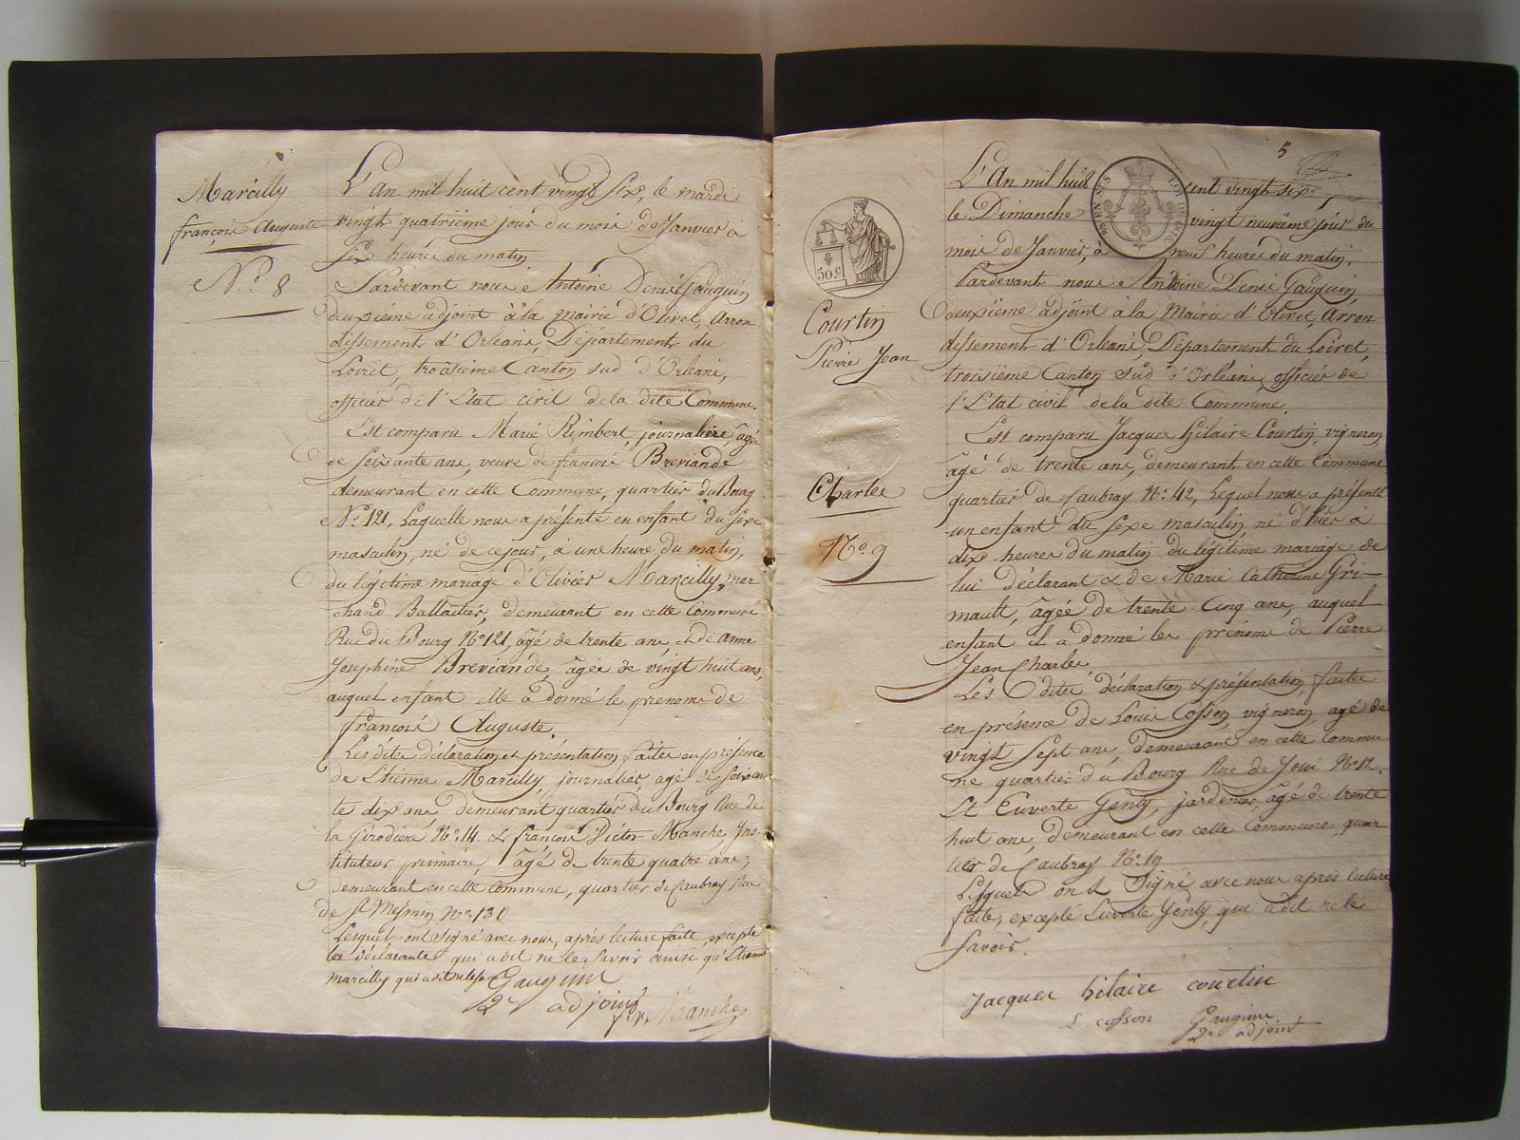 Marcilly
françois Auguste
N.º 8
L'An mil huit cent vingt Six, le mardi
vingt quatriéme jour du mois de Janvier à
six heures du matin
Pardevant nous Antoine Denis Gauguin
deuxiéme adjoint à la Mairie d'Olivet, Arron
dissement d'Orléans, Département du
Loiret, troisieme Canton sud d'Orléans,
officier de l'Etat civil de la dite Commune.
Est comparu Marie Rimbert, journaliere, agée
de soixante ans, veuve de francois Breviande
demeurant en cette Commune, quartier du Bourg
N.º 121, Laquelle nous a présenté un enfant du sexe
masculin, né de ce jour, à une heure du matin,
du légitime mariage d'Olivier Marcilly, mar
chand Ballastier, demeurant en cette Commune
Rue du Bourg N.º 121, agé de trente ans, et de anne
Josephine Breviande, agée de vingt huit ans,
auquel enfant elle a donné le prenoms de
francois Auguste.
Les dites déclaration et présentation faites en présence
de Etienne Marcilly, journalier agé de soixan
te dix ans demeurant quartier du Bourg Rue de
la Girodiere N.º 14. & francois Victor Manche, Ins-
tituteur primaire, agé de trente quatre ans,
demeurant en cette Commune, quartier de Caubray Rue
de St Mesmin N.º 130
Lesquels ont signé avec nous, après lecture faite, excepté
la déclarante qui a dit ne le savoir ainsi qu'Etienne
marcilly qui a dit
Gauguin
2e adjoint
Manche
5
50 c
Courtin
Pierre Jean
Charles
N.º 9
L'An mil huit cent vingt six
le Dimanche vingt neuvéme jour du
mois de Janvier, à neuf heures du matin.
Pardevant nous Antoine Denis Gauguin,
deuxiéme adjoint à la Mairie d'Olivet, Arron
dissement d'Orléans, Département du Loiret,
troisiéme Canton sud d'Orléans, officier de
l'Etat civil de la dite Commune.
Est comparu Jacques hilaire Courtin, vigneron
agé de trente ans, demeurant en cette Commune
quartier de Caubray N.º 42, Lequel nous a présenté
un enfant du sexe masculin, né d'hier à
dix heures du matin du légitime mariage de
lui déclarant & de Marie Catherine Gri-
mault, âgée de trente Cinq ans, auquel
enfant il a donné les prénoms de Pierre
Jean Charles.
Les dites déclaration & présentation faites
en présence de Louis Cosson, vigneron, agé de
vingt sept ans, demeurant en cette Commu
ne quartier du Bourg Rue de N.º 12.
Et Euverte Genty, jardenier, agé de trente
huit ans, demeurant en cette Commune, quar
tier de Caubray N.º 19
Lesquels ont signé avec nous après lecture
faite, excepté Euverte Genty, qui a dit ne le
savoir.
Jacques hilaire courtin
L cosson
Gauguin
2e adjoint